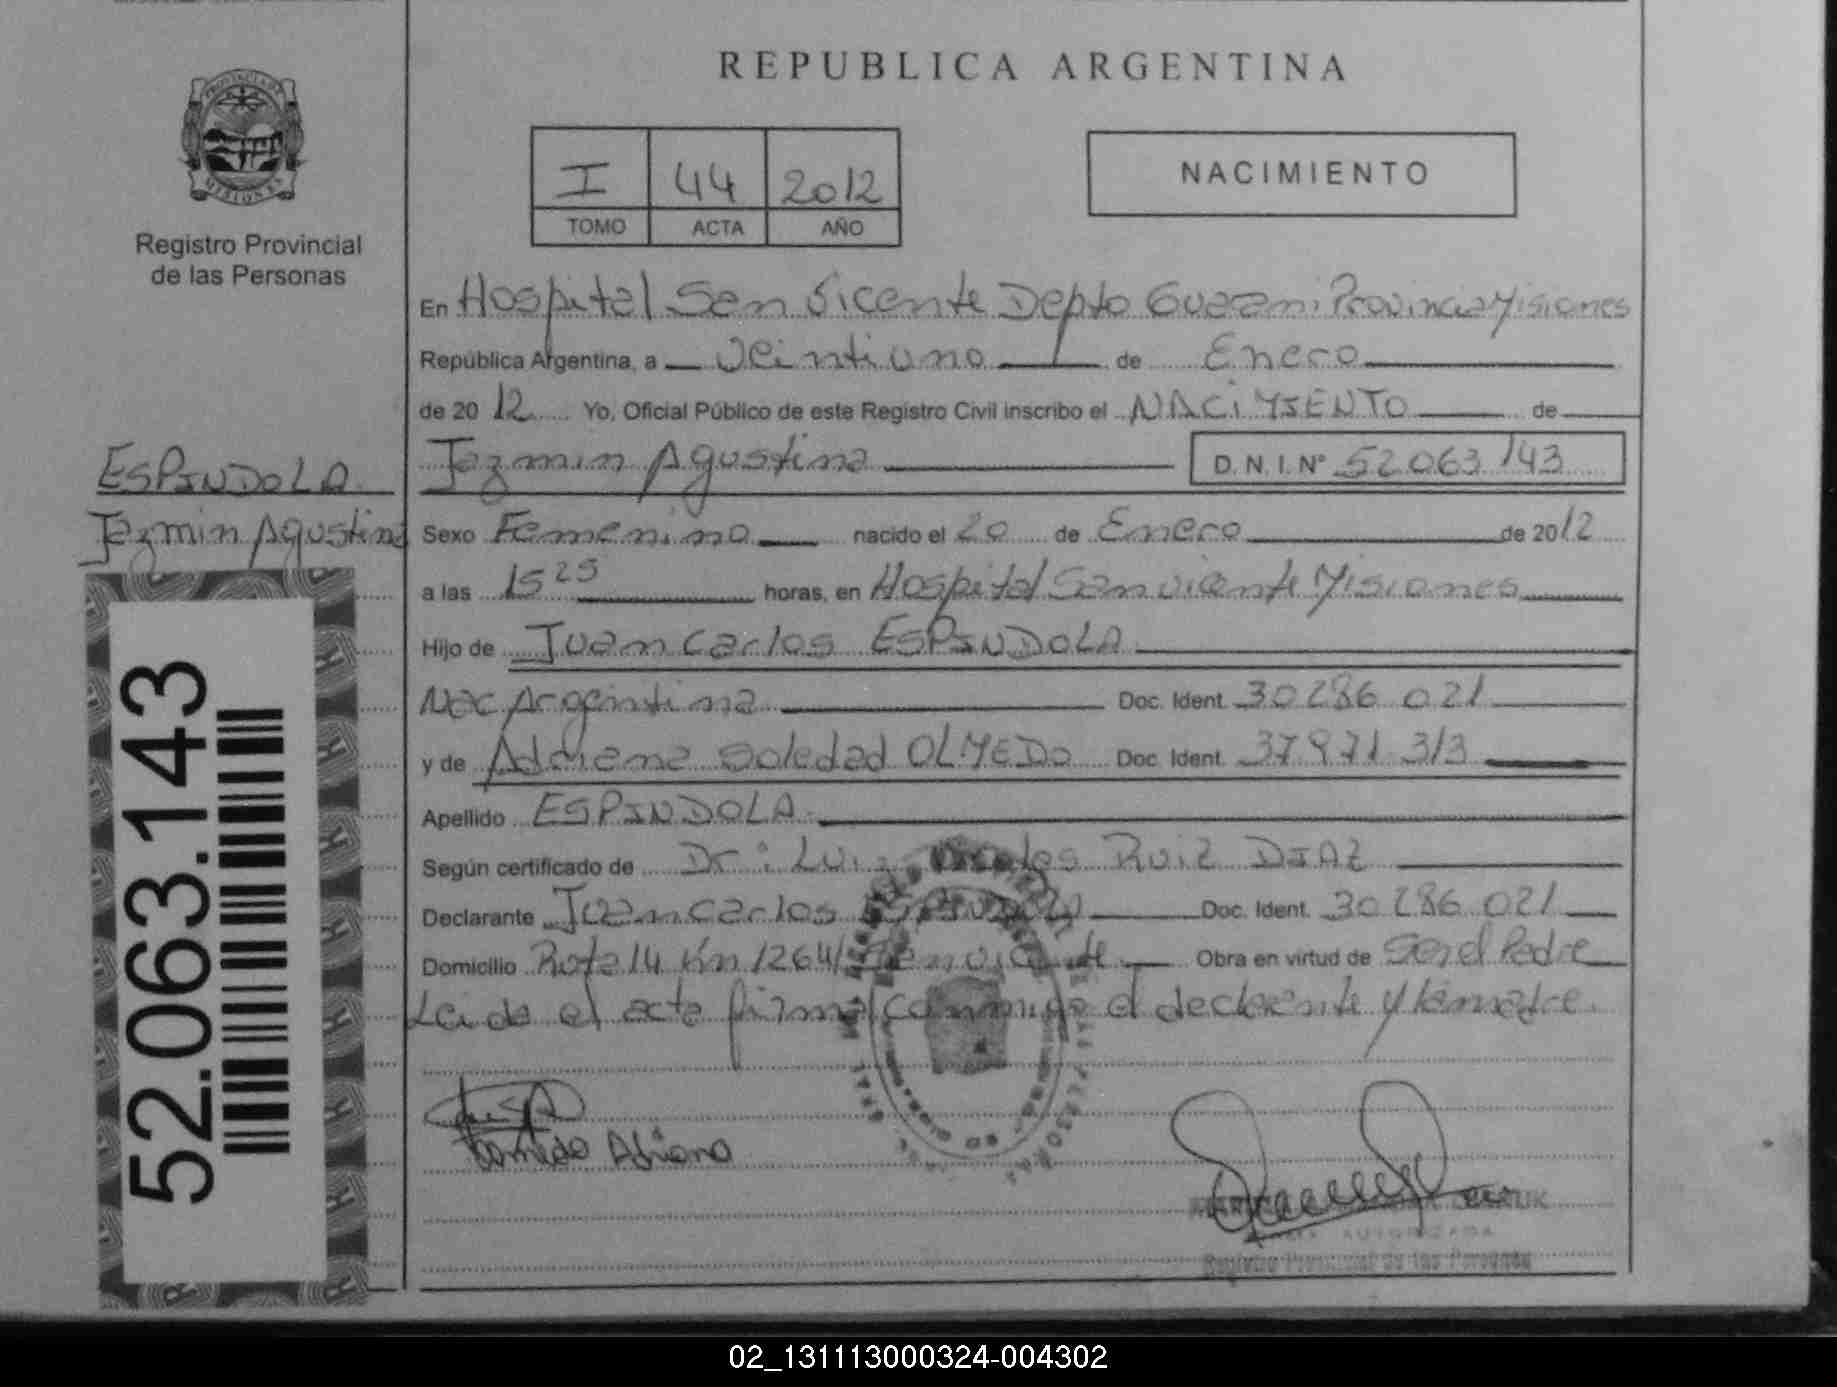 REPUBLICA ARGENTINA
PROVINCIA DE
MISIONES
Registro Provincial
de las Personas
I 44 2012
TOMO ACTA AÑO
NACIMIENTO
En Hospital San Vicente Depto Guarani Provincia Misiones
República Argentina, a Veintiuno de Enero
de 2012 Yo, Oficial Público de este Registro Civil inscribo el NACIMIENTO de
Jazmin Agustina D.N.I.N° 52063143
ESPINDOLA
Jazmin Agustina
Sexo Femenino nacido el 20 de Enero de 2012
a las 15 25 horas, en Hospital San Vicente Misiones
Hijo de Juan Carlos ESPINDOLA
Nac Argentina Doc. Ident. 30286 021
y de Adriana Soledad OLMEDO Doc. Ident. 37971 313
Apellido ESPINDOLA
Según certificado de Dr: Luis Ruiz DIAZ
Declarante Juan Carlos ESPINDOLA Doc. Ident. 30 286 021
Domicilio Ruta 14 Km 1264 San Vicente Obra en virtud de Ser el Padre
Leida el acta firma conmigo el declarante y la madre.
52.063.143
Adriana
AUTORIZADA
Registro Provincial de las Personas
02_131113000324-004302